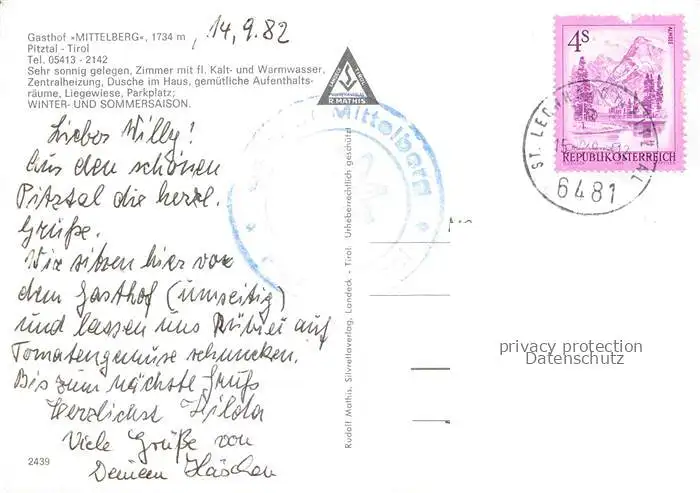 Gasthof »MITTELBERG«, 1734 m
Pitztal - Tirol
Tel. 05413 - 2142
Sehr sonnig gelegen, Zimmer mit fl. Kalt- und Warmwasser,
Zentralheizung, Dusche im Haus, gemütliche Aufenthalts-
räume, Liegewiese, Parkplatz;
WINTER- UND SOMMERSAISON.
, 14.9.82
Lieber Willy!
Aus den schönen
Pitztal die herzl.
Grüße.
Wir sitzen hier vor
dem Gasthof (umseitig)
und lassen uns auf
Tomatengemüse schmecken.
Bis zum nächste Gruß
Herzlichst Hilda
Viele Grüße von
Deinem Häschen
2439
R. MATHIS
Mittelberg
Rudolf Mathis, Silvrettaverlag, Landeck - Tirol. Urheberrechtlich geschützt
4S
ALMSEE
REPUBLIK ÖSTERREICH
ST. LEONHARD PITZTAL
6481
privacy protection
Datenschutz